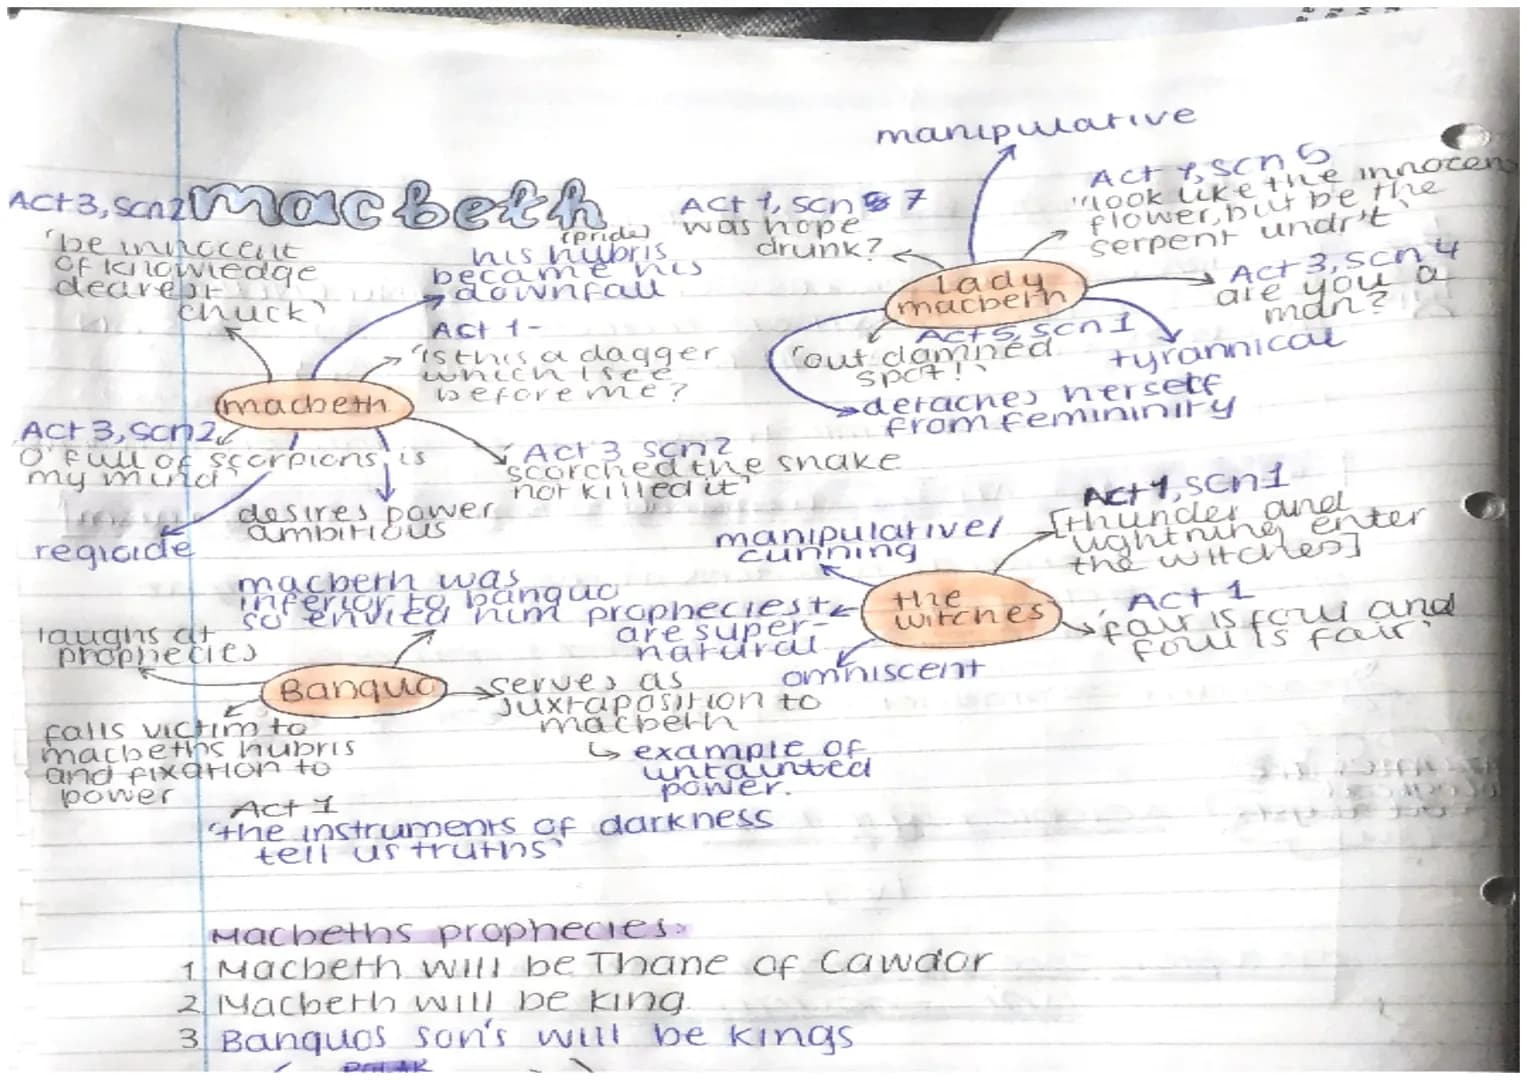 macbeth
Act 3, Scn2
'be innocent
of knowledge
dearest
chuck'
(pride)
his hubris
became his
downfall
Act 1-
'is this a dagger
which I see
before me?
macbeth
Act 3, Scn2
O'full of scorpions, is
my mind'
regicide
desires power
ambitious
Act 3 scn2
scorched the snake
not killed it'
manipulative
Act 1, scn 7
was hope
drunk?
Act 1, scn 5
'look like the innocen
flower, but be the
serpent undr't'
lady
macbeth
Act 3, scn 4
are you a
man?
Act 5, scn 1
'out damned
spot!'
tyrannical
detaches herself
from femininity
manipulative/
cunning
Act 1, scn1
[thunder and
lightning enter
the witches]
the
witches
Act 1
'fair is foul and
foul is fair'
prophecies
are super-
natural
omniscent
macbeth was
inferior to banquo
so envied him
laughs at
prophecies
Banquo
serves as
juxtaposition to
macbeth
↳ example of
untainted
power.
falls victim to
macbeths hubris
and fixation to
power
Act 1
'the instruments of darkness
tell us truths'
Macbeths prophecies:
1 Macbeth will be Thane of Cawdor
2 Macbeth will be king
3 Banquos son's will be kings